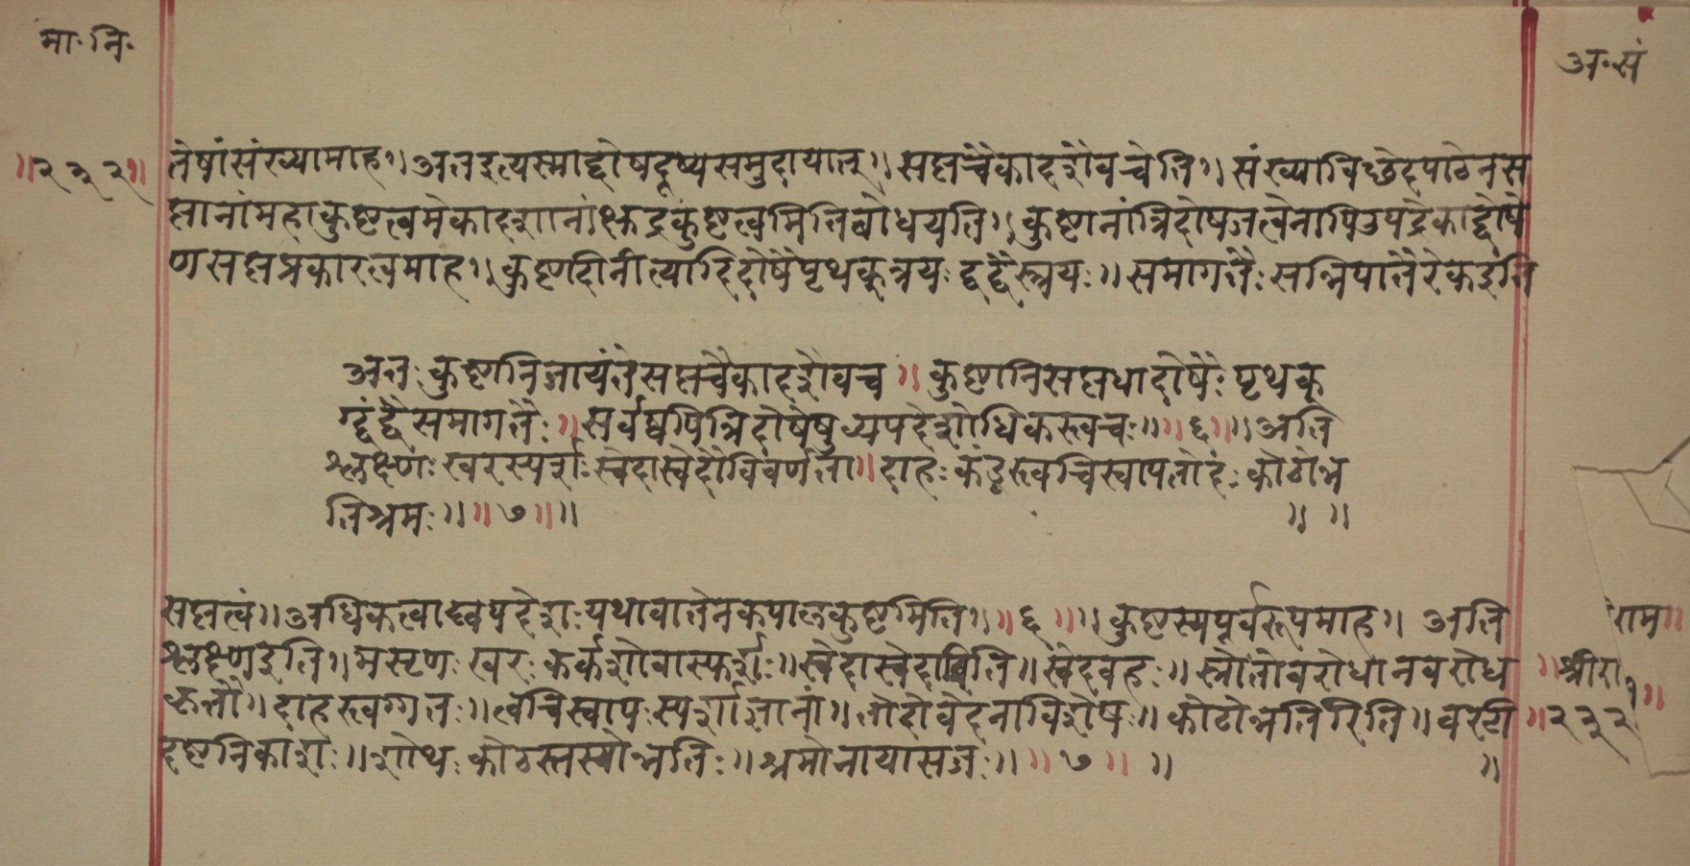 मा॰ नि॰
अ॰ सं
॥२३२॥ तेषांसंख्यामाह॥ अतइत्यस्माद्दोषदूष्यसमुदायात्॥ सप्तचैकादशैवचेति॥ संख्याविछेदपाठेनस
प्तानांमहाकुष्टत्वमेकादशानांक्षुद्रकुष्टत्वमितिबोधयति॥ कुष्टानांत्रिदोषजत्वेनापिउपद्रेकाद्दोषे
णसप्तप्रकारत्वमाह॥ कुष्टादीनीत्यादिदोषैपृथकत्रयः द्वद्वैस्त्रयः॥ समागतैः सन्निपातैरेकइति
अतः कुष्टानिजायंतेसप्तचैकादशैवच॥ कुष्टानिसप्तधादोषैः पृथक
ग्द्वंद्वैसमागतैः॥ सर्वेष्वपित्रिदोषेषुव्यपदेशोधिकस्त्वचः॥॥६॥॥अति
श्लक्ष्णः खरस्पर्शः स्वेदास्वेदौविवर्णता॥ दाहः कंडूस्त्वचिस्वापतोदः कोठोन्न
तिश्रमः॥॥७॥॥ ॥ ॥
सप्तत्वं॥ अधिकत्वाद्व्यपदेशः यथावातेनकपालकुष्टमिति॥॥६॥॥ कुष्टस्यपूर्वरूपमाह॥ अति
श्लक्ष्णइति॥ मसृणः खरः कर्कशोवास्पर्शः॥ स्वेदास्वेदाविति॥ स्वेदवहः॥ स्त्रोतोवरोधानवरोध
कृतौ॥ दाहस्त्वग्गतः॥ त्वचिस्वापः स्पर्शाज्ञानं॥ तोदोवेदनाविशेषः॥ कोठोन्नतिरिति॥ वरटी
दष्टनिकाशः॥ शोथः कोठस्तस्योन्नतिः॥ श्रमोनायासजः॥॥७॥॥ ॥
राम
॥श्रीरा
॥२३२॥